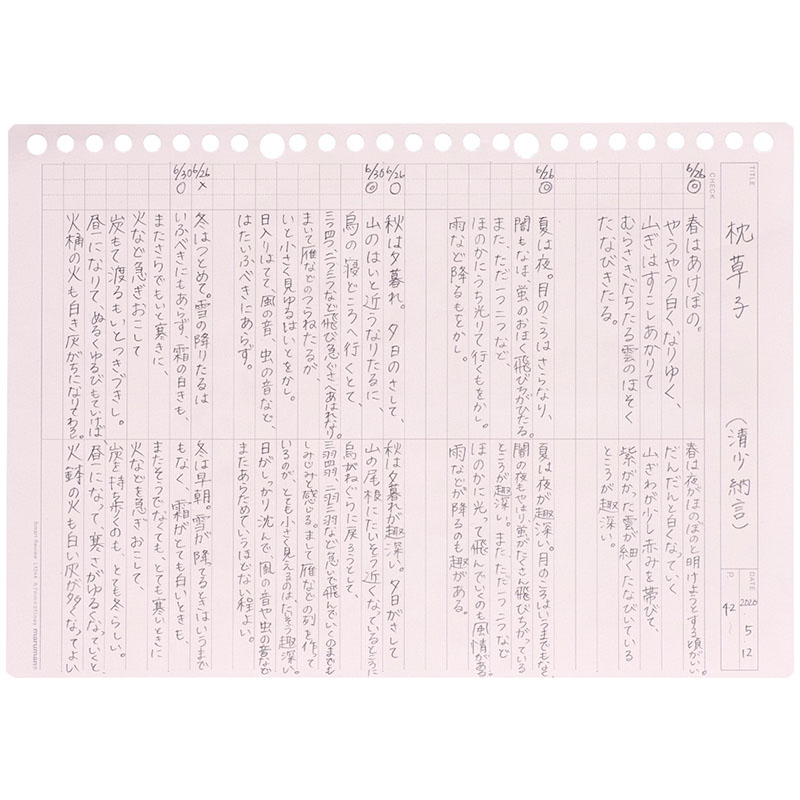 TITLE
枕草子
(清少納言)
DATE
2020 5 12
P.
42
CHECK
6/26
◎
春はあけぼの。
やうやう白くなりゆく、
山ぎはすこしあかりて
むらさきだちたる雲のほそく
たなびきたる。
春は夜がほのぼのと明けようとする頃がいい。
だんだんと白くなっていく
山ぎわが少し赤みを帯びて、
紫がかった雲が細くたなびいている
ところが趣深い。
6/26
◎
夏は夜。月のころはさらなり、
闇もなほ、蛍のおほく飛びちがひたる。
また、ただ一つ二つなど
ほのかにうち光りて行くもをかし。
雨など降るもをかし。
夏は夜が趣深い。月のころはいうまでもなく、
闇の夜もやはり、蛍がたくさん飛びちがっている
ところが趣深い。また、ただ一つ二つなど
ほのかに光って飛んでいくのも風情がある。
雨などが降るのも趣がある。
6/26
○
6/30
◎
秋は夕暮れ。夕日のさして、
山のはいと近うなりたるに、
烏の寝どころへ行くとて、
三つ四つ、二つ三つなど飛び急ぐさへあはれなり。
まいて雁などのつらねたるが、
いと小さく見ゆるはいとをかし。
日入りはてて、風の音、虫の音など、
はたいふべきにあらず。
秋は夕暮れが趣深い。夕日がさして
山の尾根にたいそう近くなっているところに
烏がねぐらに戻ろうとして、
三羽四羽、二羽三羽など急いで飛んでいくのまでも
しみじみと感じる。まして雁などの列を作って
いるのが、とても小さく見えるのはたいそう趣深い。
日がしっかり沈んで、風の音や虫の音など
またあらためていうほどない程よい。
6/26
×
6/30
○
冬はつとめて。雪の降りたるは
いふべきにもあらず、霜の白きも、
またさらでもいと寒きに、
火など急ぎおこして
炭もて渡るもいとつきづきし。
昼になりて、ぬるくゆるびもていけば、
火桶の火も白き灰がちになりてわろし。
冬は早朝。雪が降るときはいうまで
もなく、霜がとても白いときも、
またそうでなくても、とても寒いときに
火などを急ぎおこして、
炭を持ち歩くのも、とても冬らしい。
昼になって、寒さがゆるくなっていくと、
火鉢の火も白い灰が多くなってよい
Smart Review L1244 marumann